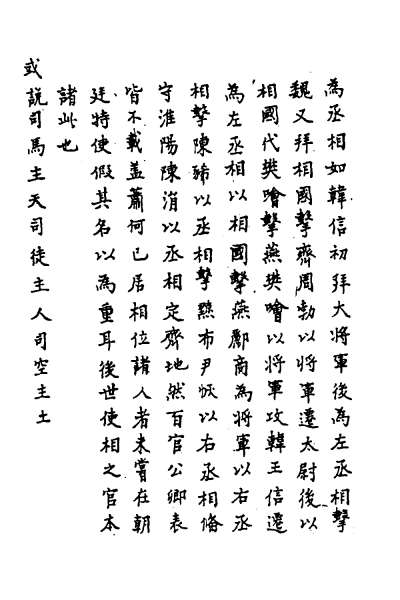 為丞相如韓信初拜大將軍後為左丞相擊
魏又拜相國擊齊周勃以將軍遷太尉後以
相國代樊噲擊燕樊噲以將軍攻韓王信遷
為左丞相以相國擊燕酈商為將軍以右丞
相擊陳豨以丞相擊黥布尹恢以右丞相備
守淮陽陳涓以丞相定齊地然百官公卿表
皆不載盖蕭何已居相位諸人者未嘗在朝
廷特使假其名以為重耳後世使相之官本
諸此也
或說司馬主天司徒主人司空主土